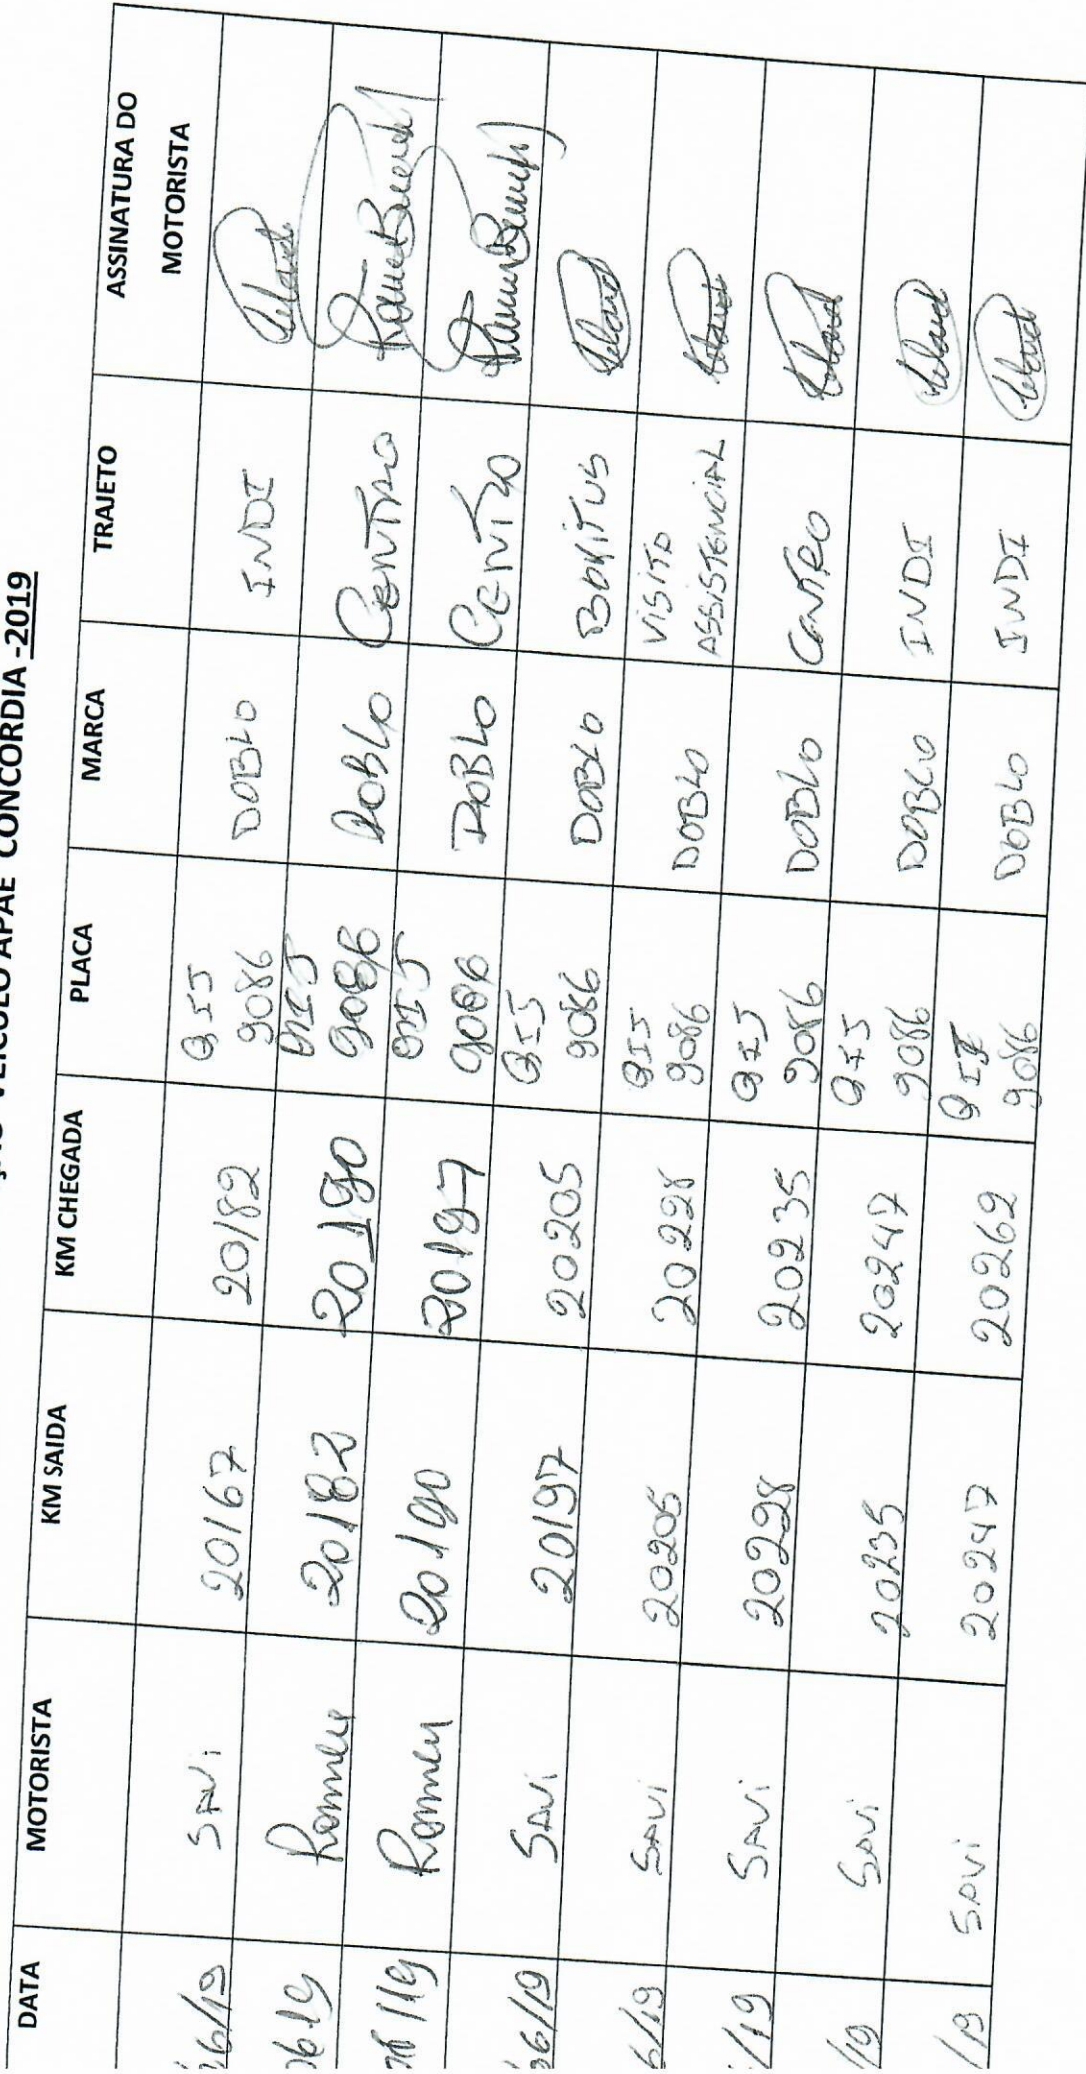 VEICULO APAE CONCORDIA -2019
DATA MOTORISTA KM SAIDA KM CHEGADA PLACA MARCA TRAJETO ASSINATURA DO MOTORISTA
6/19 SAVi 20167 20182 QIJ 9086 DOBLO INDI
06 19 Romeu 20182 20190 QIJ 9086 DOBLO CENTRO
06 119 Romeu 20190 20197 QIJ 9086 DOBLO CENTRO
06/19 SAVi 20197 20205 QIJ 9086 DOBLO
6/19 SAVi 20205 20228 QIJ 9086 DOBLO VISITA ASSISTENCIAL
/19 SAVi 20228 20235 QIJ 9086 DOBLO CENTRO
/19 SAVi 20235 20247 QIJ 9086 DOBLO INDI
/19 SAVi 20247 20262 QIJ 9086 DOBLO INDI